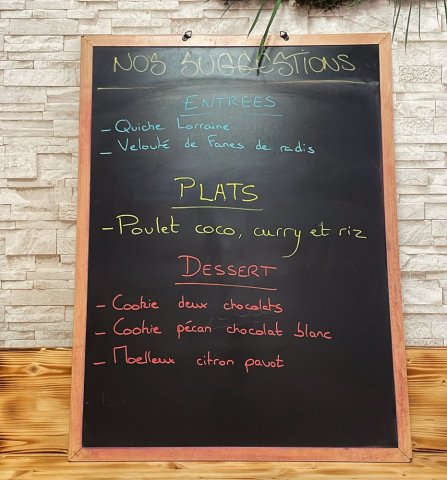 NOS SUGGESTIONS
ENTREES
- Quiche Lorraine
- Velouté de Fanes de radis
PLATS
- Poulet coco, curry et riz
DESSERT
- Cookie deux chocolats
- Cookie pécan chocolat blanc
- Moelleux citron pavot